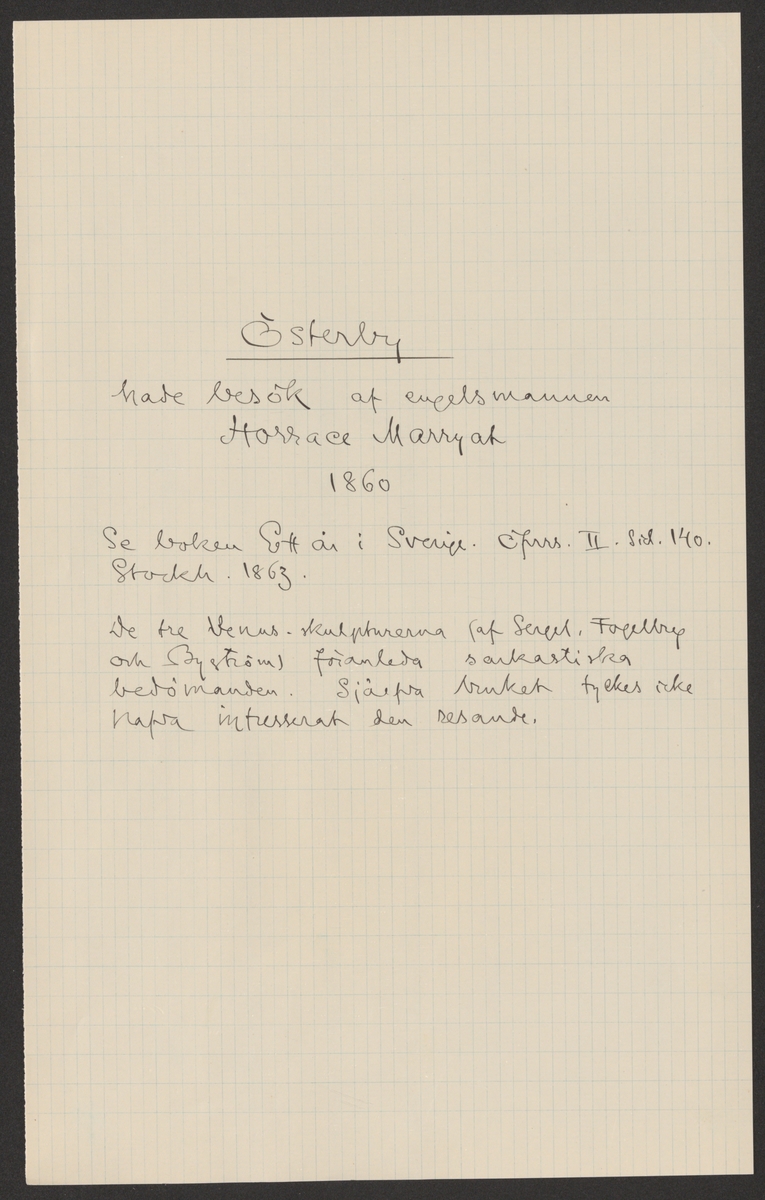 Österby
hade besök af engelsmannen
Horrace Marryat
1860
Se boken Ett år i Sverige. Öfvers. II. Sid. 140.
Stockh. 1863.
De tre Venus-skulpturerna (af Sergel, Fogelberg
och Byström) föranleda sarkastiska
bedömanden. Själfva bruket tyckes icke
hafva intresserat den resande.